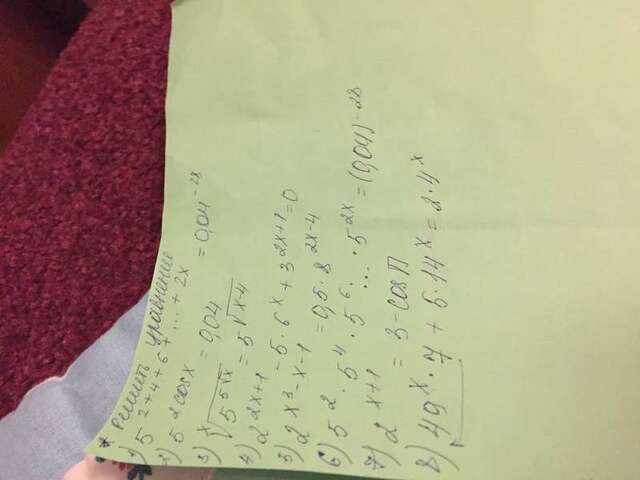 * Решить уравнение
1) 5^{2+4+6+...+2x} = 0,04^{-28}
2) 5^{2cosx} = 0,04
3) ^x√(5^{5√x}) = 5^{√(x-4)}
4) 2^{2x+1} - 5·6^x + 3^{2x+1} = 0
5) 2^{x³-x-1} = 0,5·8^{2x-4}
6) 5^2 · 5^4 · 5^6 ... · 5^{2x} = (0,04)^{-28}
7) 2^{x+1} = 3 - cosП
8) 49^x · 7 + 5·14^x = 2·4^x